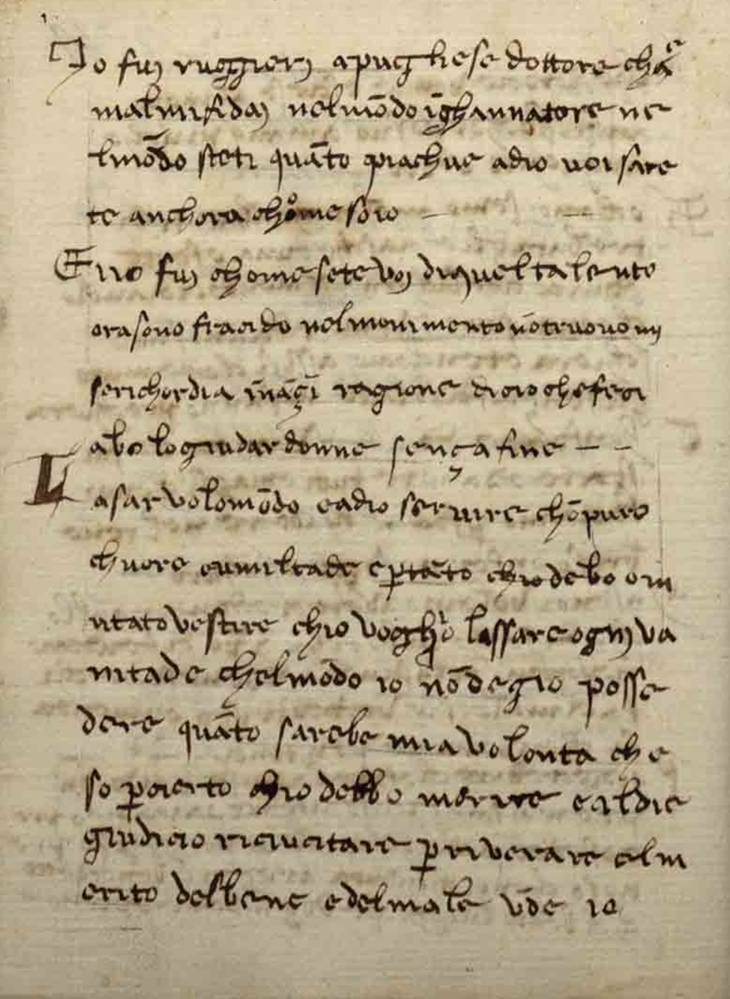 Io fui ruggieri apugliese dottore chē
malmifidai nelmōdo īghannatore ne
lmōdo steti quāto piachue adio voi sare
te anchora chome sōio
Erio fui chome sete voi diqueltalento
orasono fracido nelmonimento nōtruovo mi
serichordia ināçi ragione dicio chefeci
abo logiudar donne sença fine
Lasar volomōdo eadio servire chōpuro
chuore eumiltade epertāto chiodebo om
ntato vestire chio voglio lassare ogni va
nitade chelmōdo io nōdegio posse
dere quāto sarebe mia volonta che
so percierto chio debbo morire ealdie
giudicio riciucitare priverare elm
erito delbene edelmale ūde io